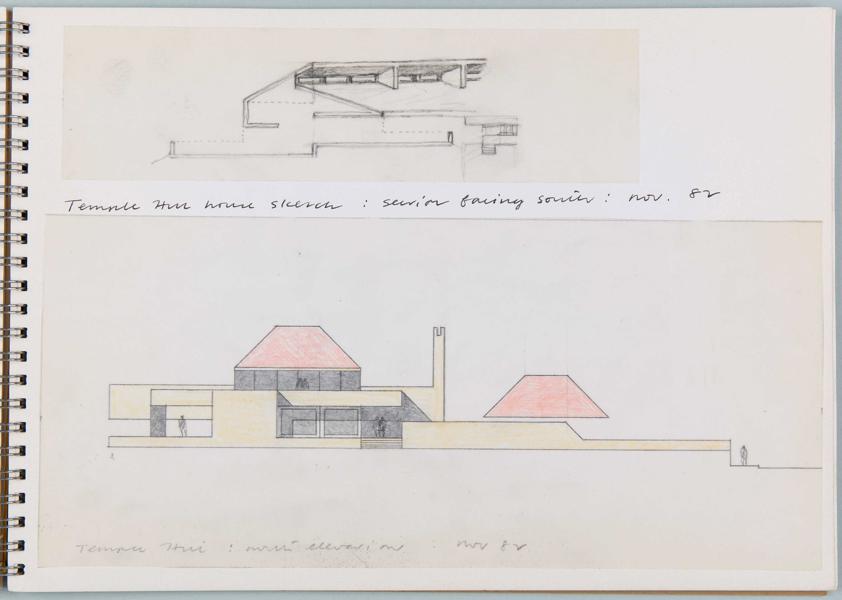 Temple Hill house sketch : section facing south : nov. 82
Temple Hill : north elevation : nov 82